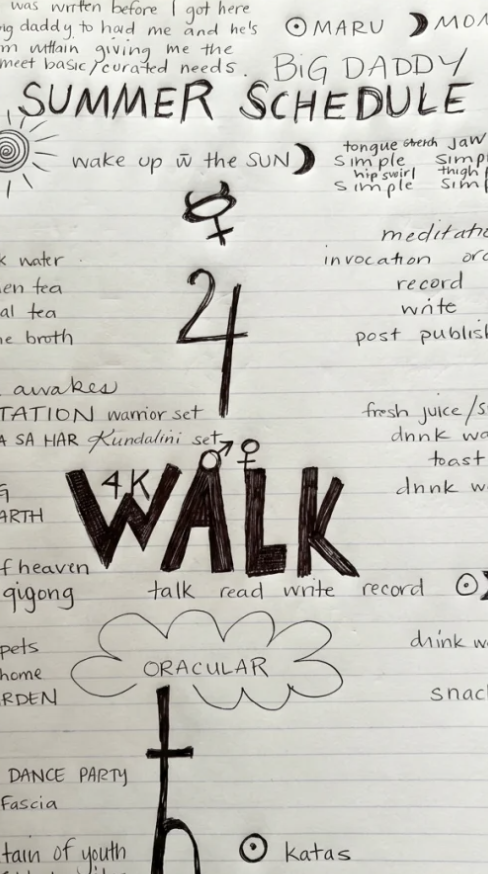 was written before I got here
daddy to had me and he's
giving me the
meet basic/curated needs.
☉ MARU ☽ MON
BIG DADDY
SUMMER SCHEDULE
wake up w̄ the SUN ☽
tongue stretch jaw
simple simpl
hip swirl thigh
simple simpl
☿
meditatio
k water
invocation
en tea
record
al tea
♃
write
e broth
post publish
awakes
TATION warrior set
fresh juice/s
A SA HAR Kundalini set
drink wa
♂ ♀
toast
4K
WALK
drink w
ARTH
f heaven
qigong
talk read write record ☉
pets
drink w
home
ORACULAR
RDEN
snac
♄
DANCE PARTY
Fascia
tain of youth
☉ katas